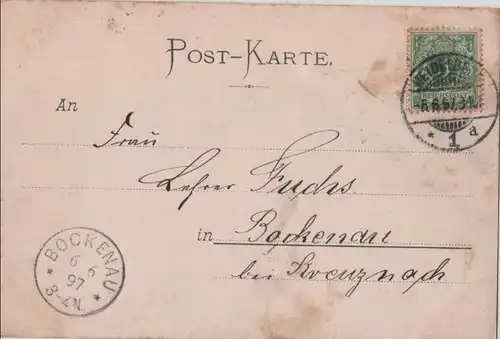 POST-KARTE.
HEIDELBERG
5.6.97.3
* 1 a
An
Frau
Lehrer Fuchs
in Bockenau
bei Kreuznach
* BOCKENAU *
6 6
97
3-4N.